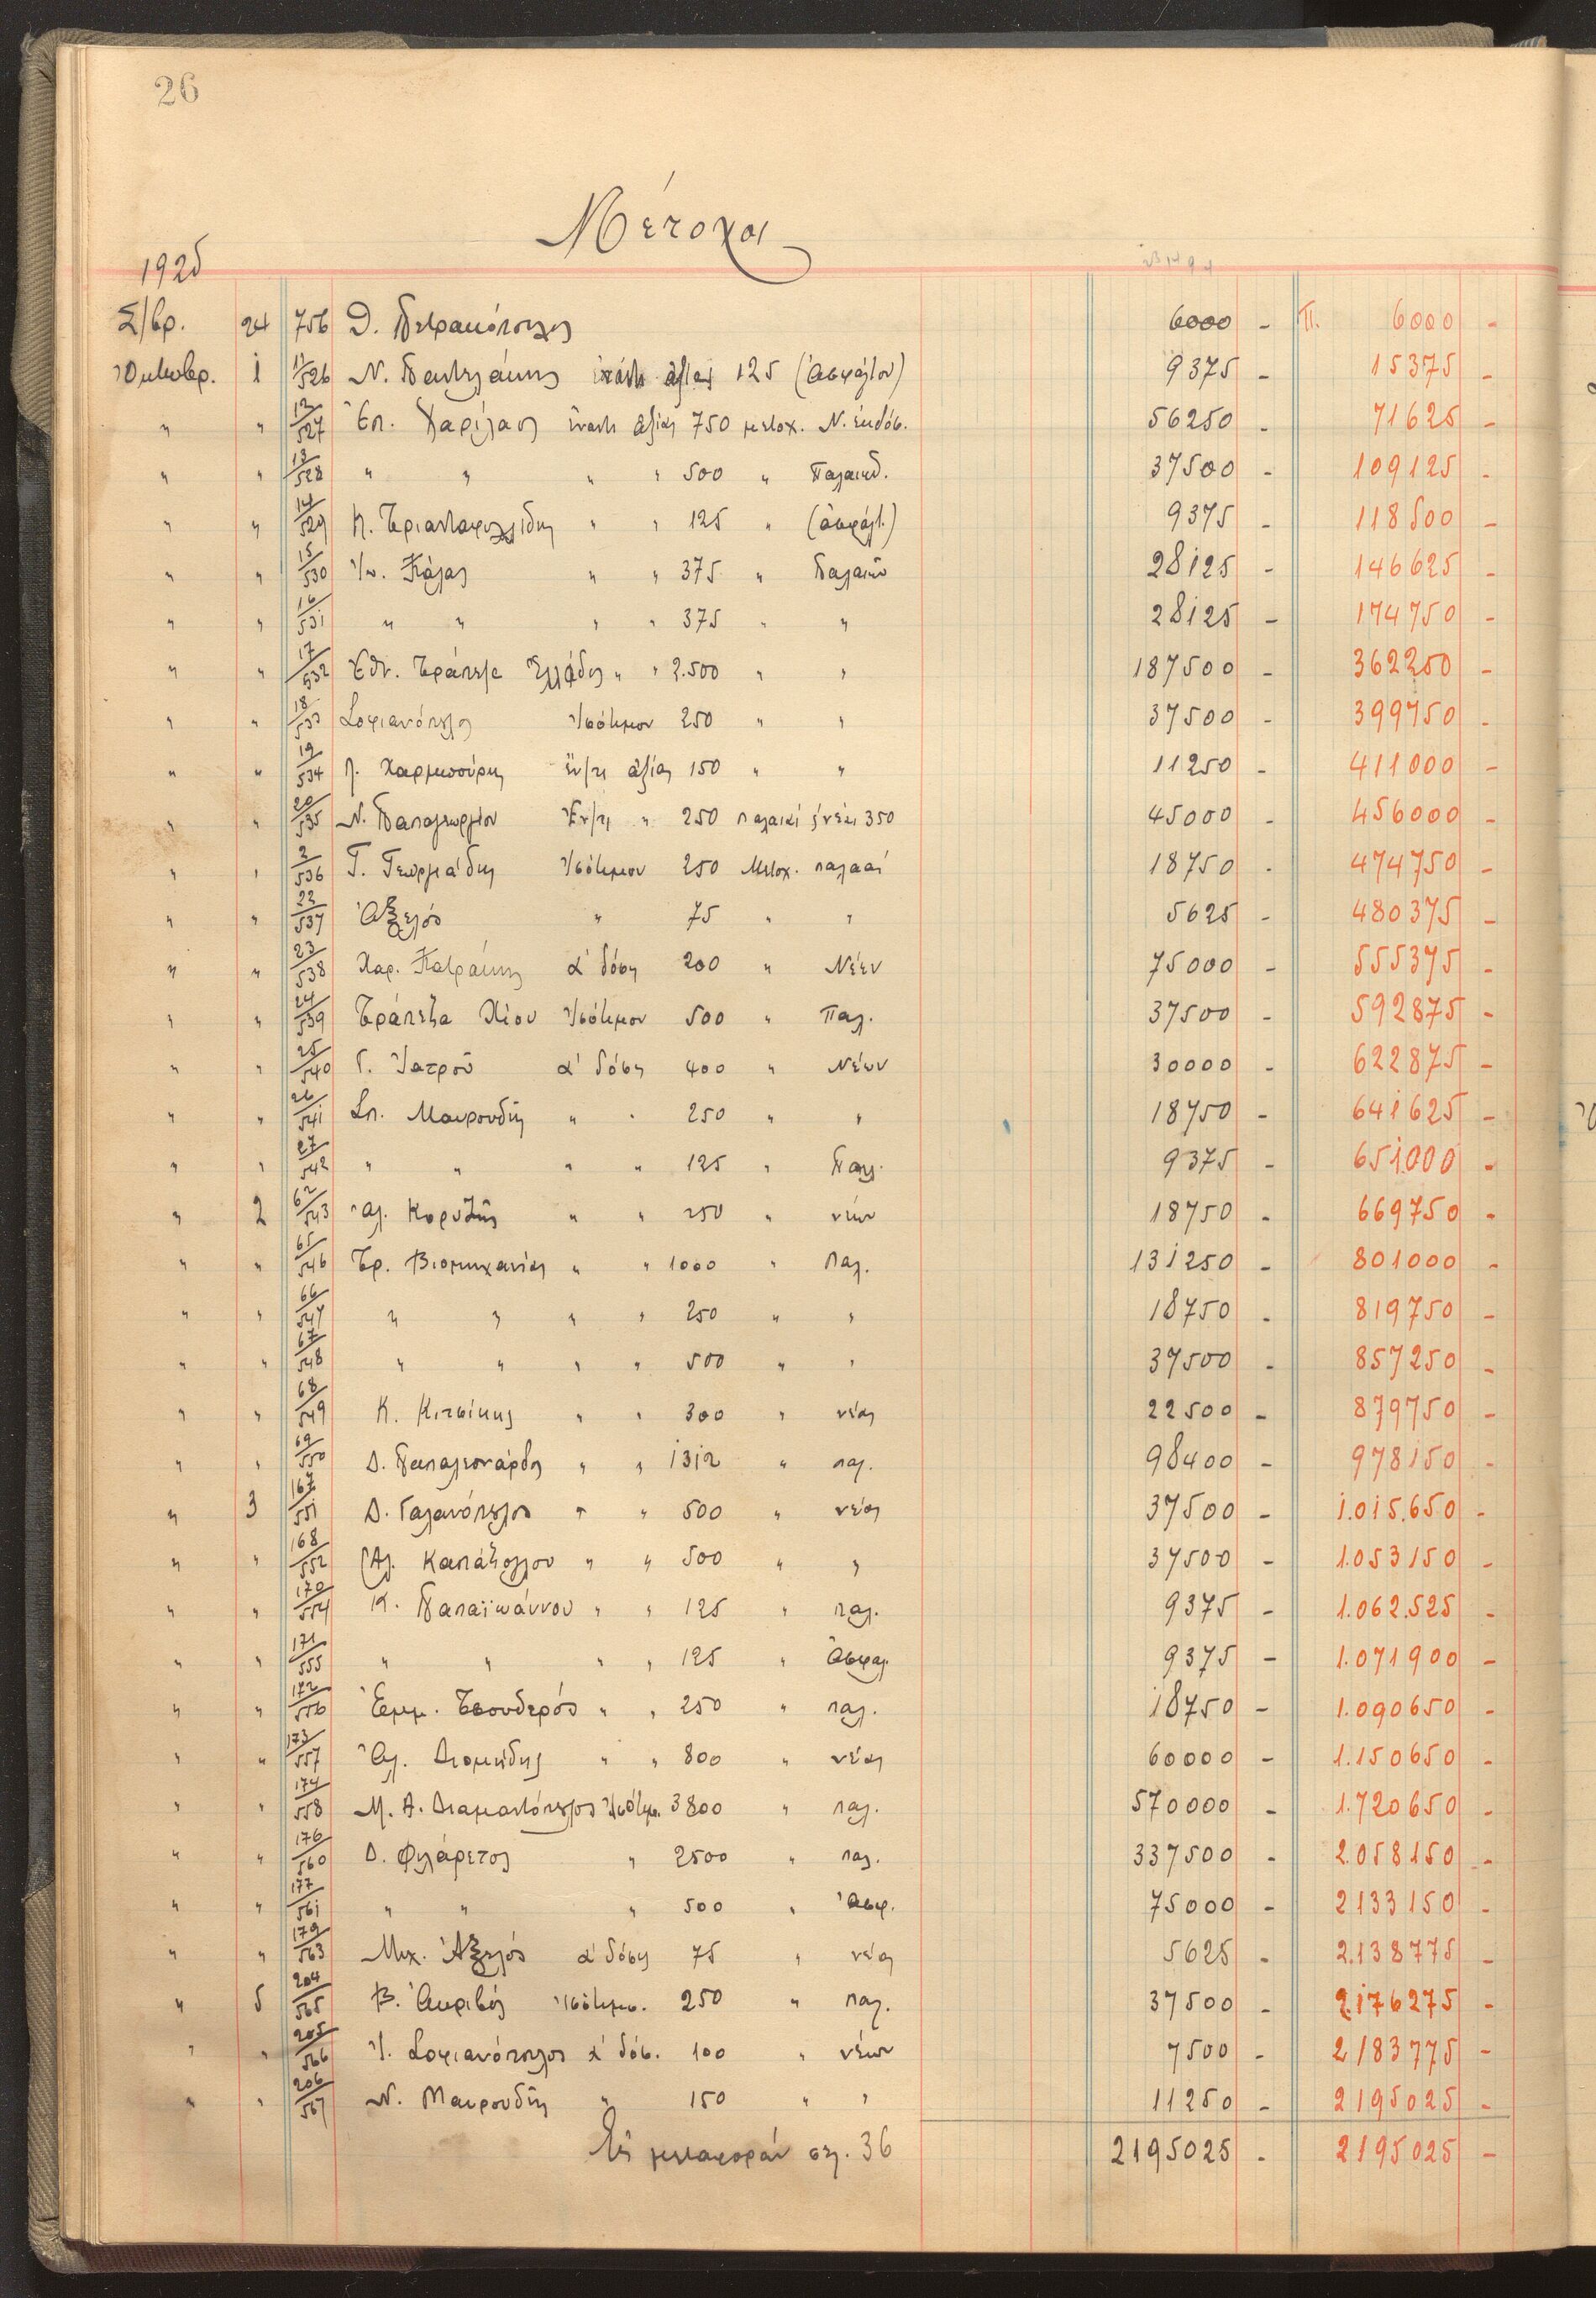 26
Μέτοχοι
1925
Σ/βρ. 24 756 Δ. Πετρακόπουλος 6000 - Π. 6000 -
Ὀκτωβρ. 1 11/526 Ν. Παντελάκης ἔναντι ἀξίας 125 (Ἀσφάλτου) 9375 - 15375 -
" " 12/527 Ἐπ. Χαρίλαος ἔναντι ἀξίας 750 μετοχ. Ν. ἐκδόσ. 56250 - 71625 -
" " 13/528 " " " " 500 " Παλαιῶν 37500 - 109125 -
" " 14/529 Κ. Τριανταφυλλίδης " " 125 " (ἀσφάλτ.) 9375 - 118500 -
" " 15/530 Ἰω. Πάλλης " " 375 " Παλαιῶν 28125 - 146625 -
" " 16/531 " " " " 375 " " 28125 - 174750 -
" " 17/532 Ἐθν. Τράπεζα Ἑλλάδος " " 2.500 " " 187500 - 362250 -
" " 18/533 Σοφιανόπουλος Ἰσότιμον 250 " " 37500 - 399750 -
" " 19/534 ἔν/τι ἀξίας 150 " " 11250 - 411000 -
" " 20/535 Ν. Παπαγεωργίου Ἔν/τι " 250 παλαιαί & νέαι 350 45000 - 456000 -
" " 2/536 Γ. Γεωργιάδης Ἰσότιμον 250 Μετοχ. παλααί 18750 - 474750 -
" " 22/537 Ἀξελός " 75 " " 5625 - 480375 -
" " 23/538 Χαρ. Πατράκης α' δόση 200 " Νέων 75000 - 555375 -
" " 24/539 Τράπεζα Χίου Ἰσότιμον 500 " Παλ. 37500 - 592875 -
" " 25/540 Γ. Ἰατροῦ α' δόση 400 " Νέων 30000 - 622875 -
" " 26/541 Σπ. Μαυρουδῆς " " 250 " " 18750 - 641625 -
" " 27/542 " " " " 125 " Παλ. 9375 - 651.000 -
" 2 62/543 Ἀλ. Κορυζῆς " " 250 " νέων 18750 - 669750 -
" " 65/546 Τρ. Βιομηχανίας " " 1000 " παλ. 131250 - 801000 -
" " 66/547 " " " " 250 " " 18750 - 819750 -
" " 67/548 " " " " 500 " " 37500 - 857250 -
" " 68/549 Κ. Κιτσίκης " " 300 " νέας 22500 - 879750 -
" " 69/550 Δ. Παπαλεονάρδος " " 1312 " παλ. 98400 - 978150 -
" 3 167/551 Δ. Γαλανόπουλος " " 500 " νέας 37500 - 1.015.650 -
" " 168/552 Ἀλ. Καπάτσογλου " " 500 " " 37500 - 1.053150 -
" " 170/554 Κ. Παπαϊωάννου " " 125 " παλ. 9375 - 1.062.525 -
" " 171/555 " " " " 125 " Ἀσφαλ. 9375 - 1.071900 -
" " 172/556 Ἐμμ. Τσουδερός " " 250 " παλ. 18750 - 1.090650 -
" " 173/557 Ἀλ. Διομήδης " " 800 " νέας 60000 - 1.150650 -
" " 174/558 Μ. Α. Διαμαντόπουλος Ἰσότιμ. 3800 " παλ. 570000 - 1.720650 -
" " 176/560 Δ. Φιλάρετος " 2500 " παλ. 337500 - 2.058150 -
" " 177/561 " " " 500 " Ἀσφ. 75000 - 2133150 -
" " 179/563 Μιχ. Ἀξελός α' δόση 75 " νέας 5625 - 2.138775 -
" 5 204/565 Β. Ἀκριβός Ἰσότιμο. 250 " παλ. 37500 - 2.176275 -
" " 205/566 Ἰ. Σοφιανόπουλος α' δόσ. 100 " νέων 7500 - 2183775 -
" " 206/567 Ν. Μαυρουδῆς " 150 " " 11250 - 2195025 -
Εἰς μεταφοράν σελ. 36 2195025 - 2195025 -